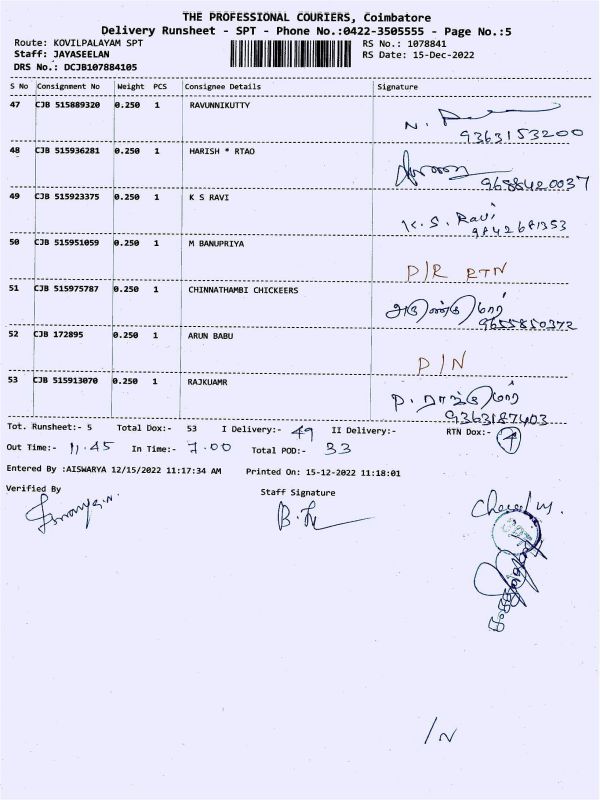 THE PROFESSIONAL COURIERS, Coimbatore
Delivery Runsheet - SPT - Phone No.:0422-3505555 - Page No.:5
Route: KOVILPALAYAM SPT RS No.: 1078841
Staff: JAYASEELAN RS Date: 15-Dec-2022
DRS No.: DCJB107884105
S No Consignment No Weight PCS Consignee Details Signature
47 CJB 515889320 0.250 1 RAVUNNIKUTTY
9363153200
48 CJB 515936281 0.250 1 HARISH * RTAO
9688420037
49 CJB 515923375 0.250 1 K S RAVI K. S. Ravi
9842681353
50 CJB 515951059 0.250 1 M BANUPRIYA
D/R RTN
51 CJB 515975787 0.250 1 CHINNATHAMBI CHICKEERS
9655850372
52 CJB 172895 0.250 1 ARUN BABU
D/N
53 CJB 515913070 0.250 1 RAJKUAMR
9363187403
Tot. Runsheet:- 5 Total Dox:- 53 I Delivery:- 49 II Delivery:- RTN Dox:- 4
Out Time:- 11.45 In Time:- 7.00 Total POD:- 33
Entered By :AISWARYA 12/15/2022 11:17:34 AM Printed On: 15-12-2022 11:18:01
Verified By Staff Signature
/N